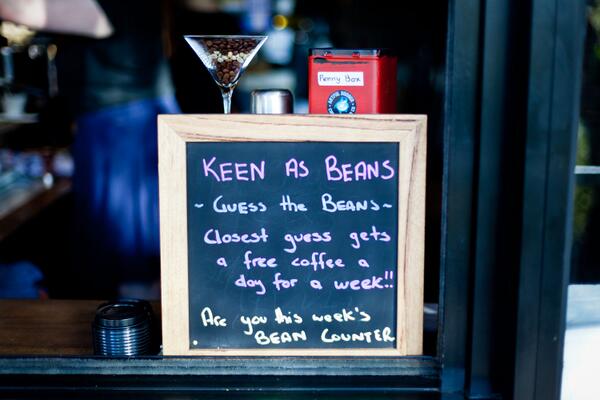 Penny Box
KEEN AS BEANS
~ GUESS the BEANS ~
Closest guess gets
a free coffee a
day for a week!!
Are you this week's
BEAN COUNTER